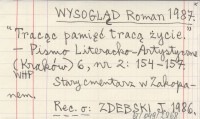 WYSOGLĄD Roman 1987.
"Tracąc pamięć tracą życie."
– Pismo Literacko-Artystyczne
(Kraków) 6, nr 2: 154-157.
WHP
Stary cmentarz w Zakopa-
nem.
Rec. o: ZDĘBSKI, J. 1986.